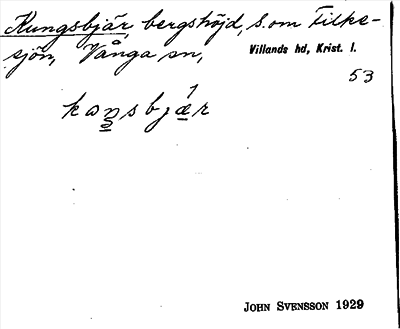 Kungsbjär, bergshöjd, S. om Filke-
sjön, Vånga sn, Villands hd, Krist. l.
53
John Svensson 1929